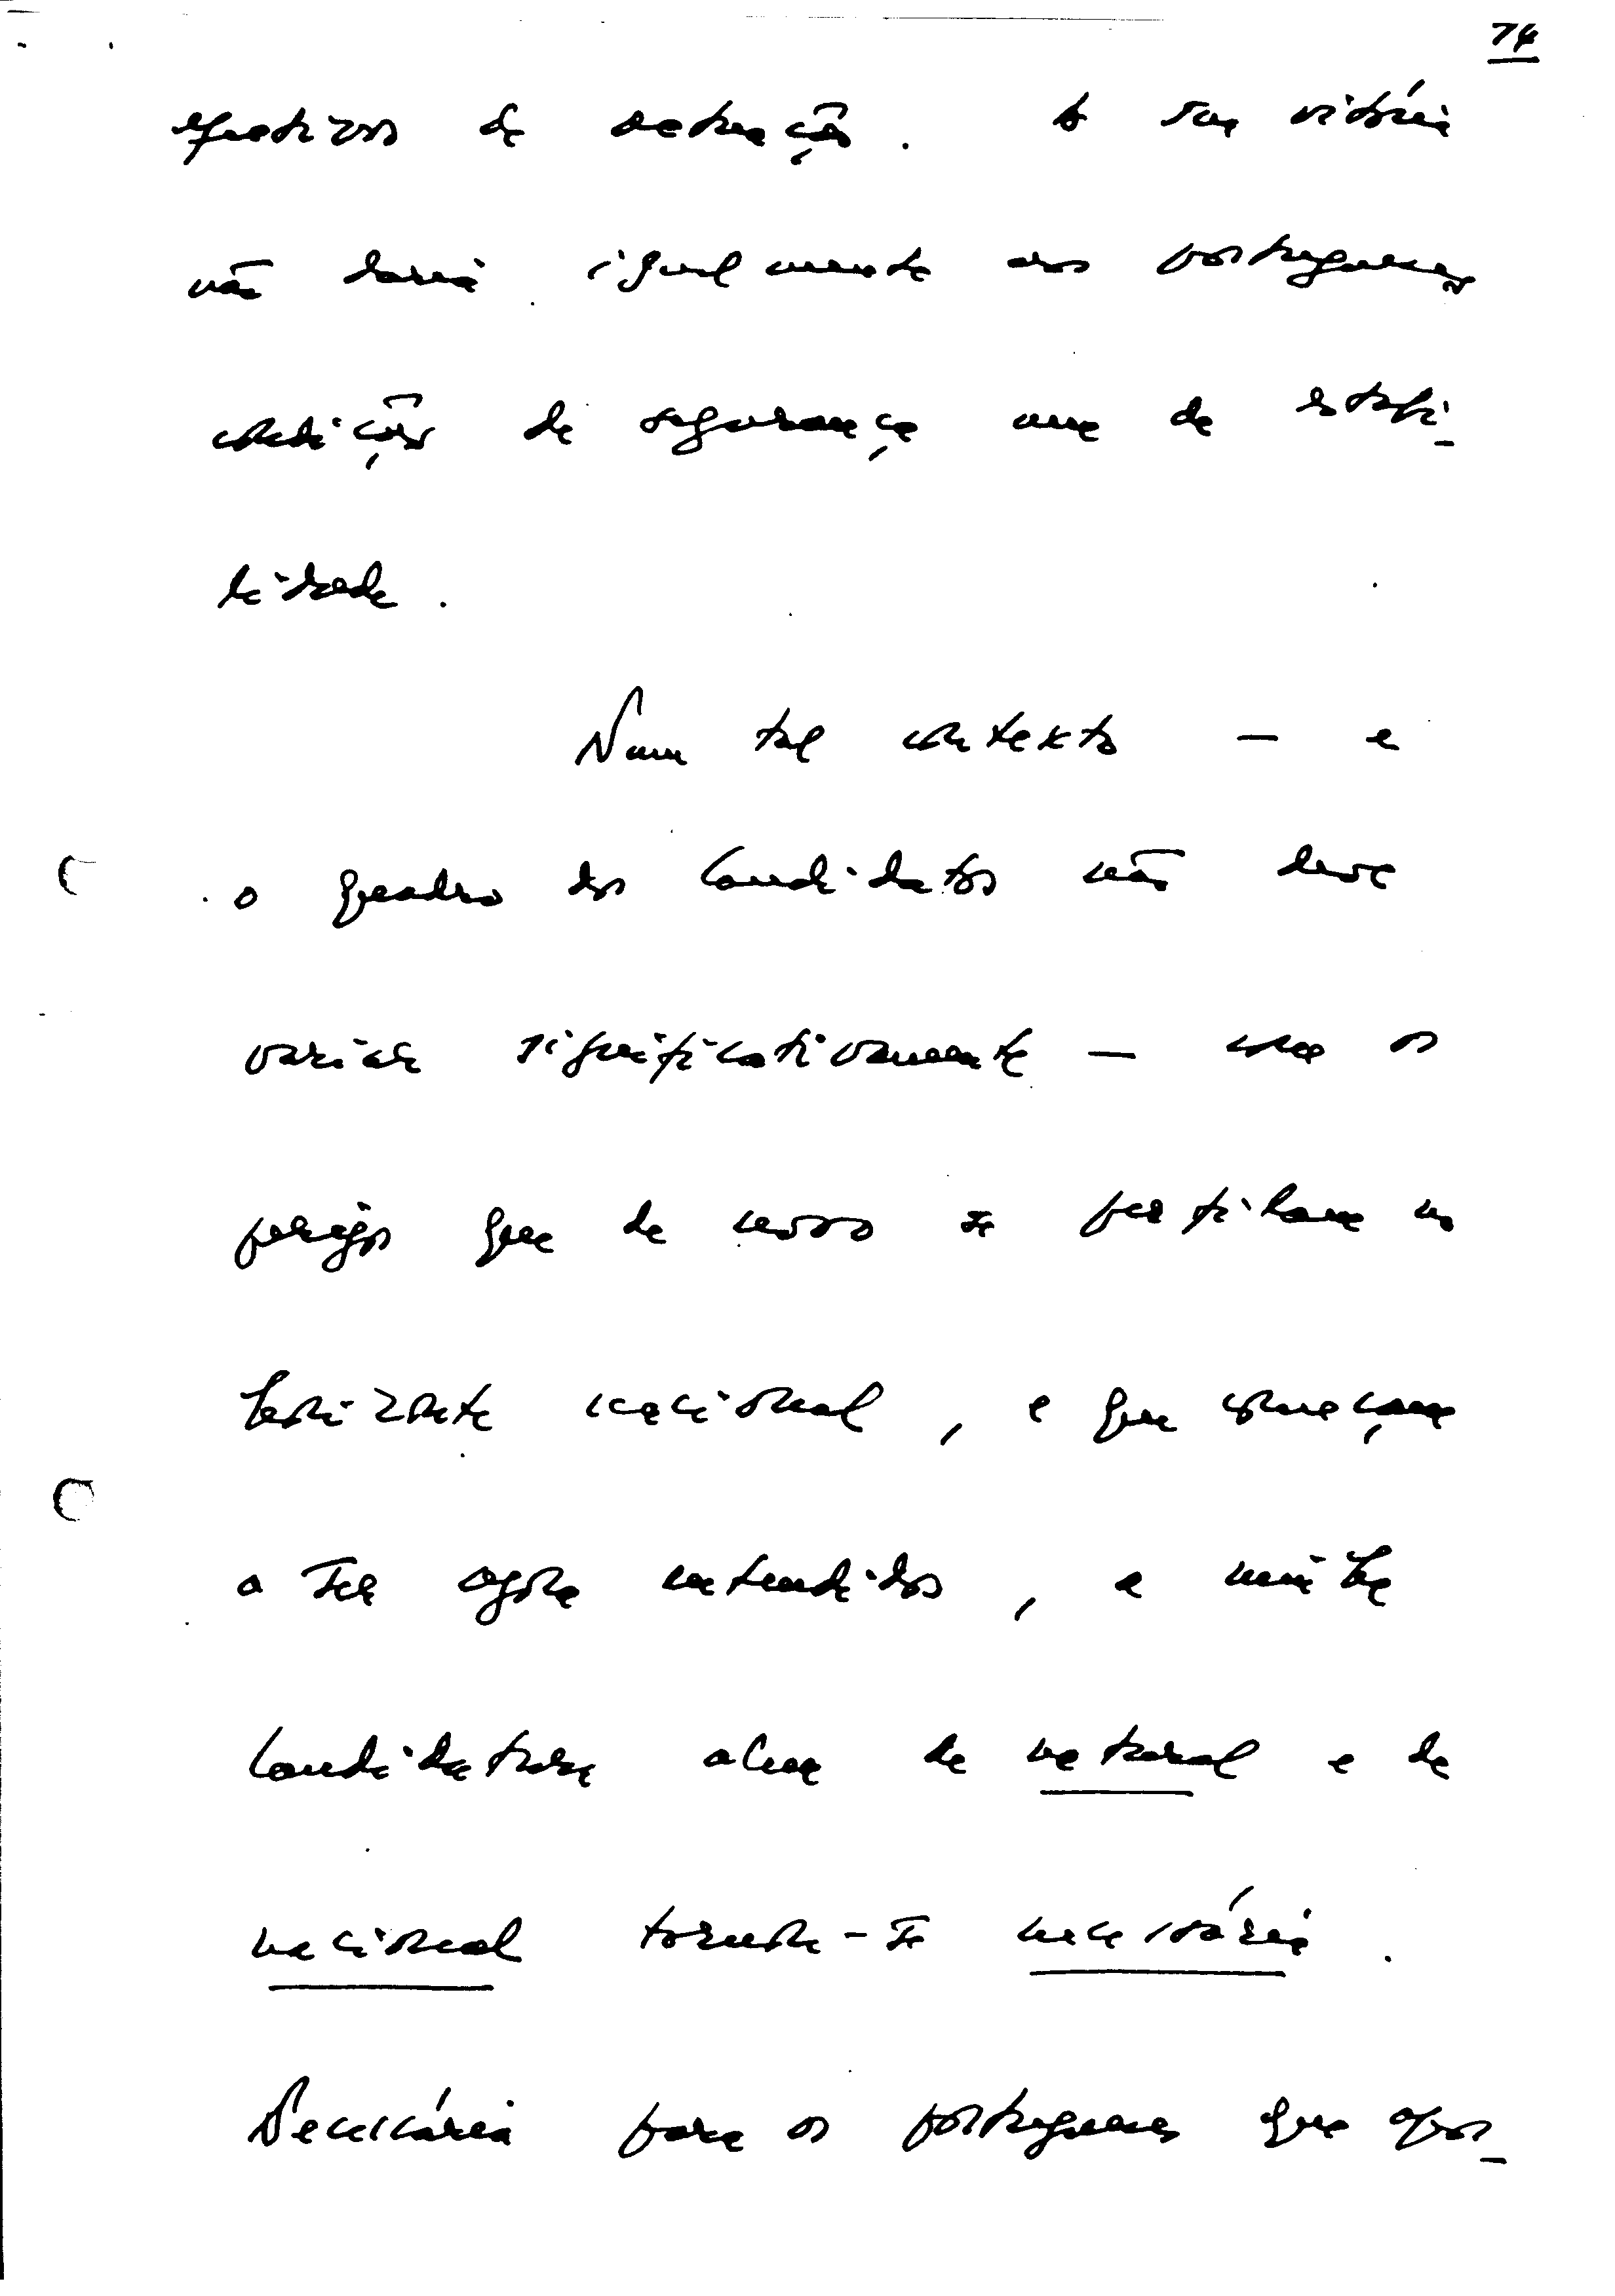 74
efectivos de actuação. A sua vitória
não daria igualmente aos portugueses
condições de segurança nem de estabi-
lidade.
Num tal contexto — e
o quadro dos candidatos não deve
variar significativamente — com os
perigos que de novo se perfilam no
horizonte nacional, e que começam
a ser agora entendidos, a minha
candidatura além de natural e de
nacional tornou-se necessária.
Necessária para os portugueses que apos-